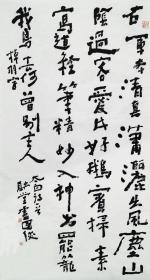 右軍本清真瀟灑出風塵山
陰過客愛此好鵝賓掃素
寫道經筆精妙入神書罷籠
鵝去何曾別主人